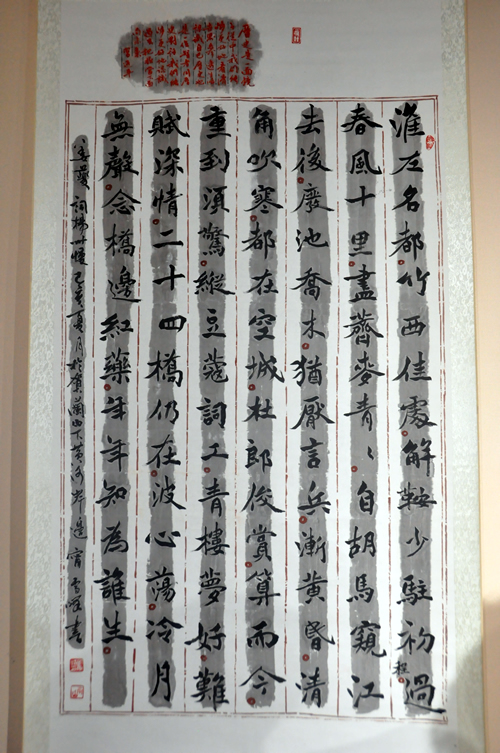 淮左名都竹西佳處解鞍少駐初過程
春風十里盡薺麥青〻自胡馬窺江
去後廢池喬木猶厭言兵漸黄昏清
角吹寒都在空城杜郎俊賞算而今
重到須驚縱豆蔻詞工青樓夢好難
賦深情二十四橋仍在波心蕩冷月
無聲念橋邊紅藥年年知為誰生
姜夔詞揚州慢己亥夏月於蘭山下黄河岸邊書